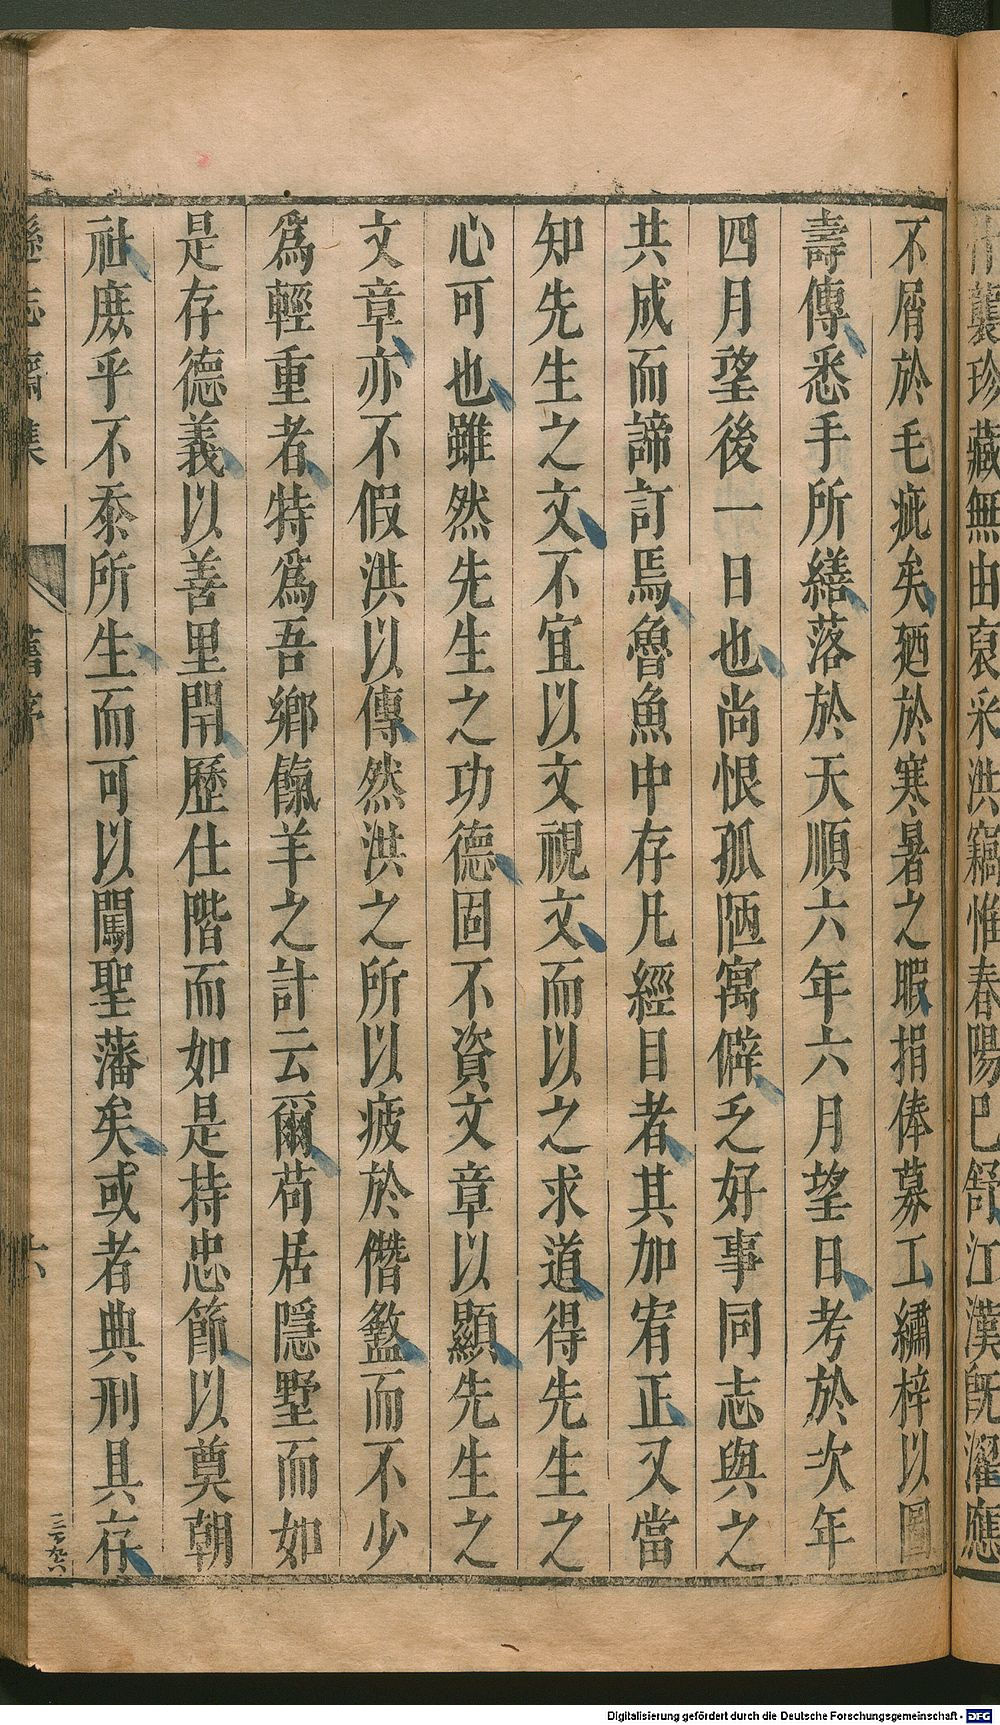 襲珍藏無由裒采洪竊惟春陽巴舒江漢旣濯應
不屑於毛疵矣廼於寒暑之暇捐俸募工繡梓以圖
壽傳悉手所繕落於天順六年六月望日考於次年
四月望後一日也尚恨孤陋寓僻乏好事同志與之
共成而諦訂焉魯魚中存凡經目者其加宥正又當
知先生之文不宜以文視文而以之求道得先生之
心可也雖然先生之功德固不資文章以顯先生之
文章亦不假洪以傳然洪之所以疲於僭蠢而不少
爲輕重者特爲吾鄉餼羊之計云爾苟居隱墅而如
是存德義以善里閈歷仕階而如是持忠節以奠朝
社庶乎不忝所生而可以闖聖藩矣或者典刑具存
遜志齋集
舊序
六
三百九六
Digitalisierung gefördert durch die Deutsche Forschungsgemeinschaft - DFG